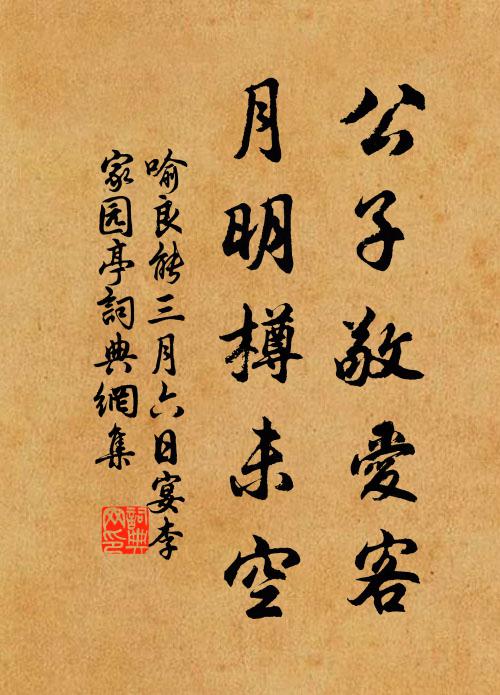 公子敬愛客
月明樽未空
喻良能三月六日宴李
家园亭詞典網集
詞典
网印